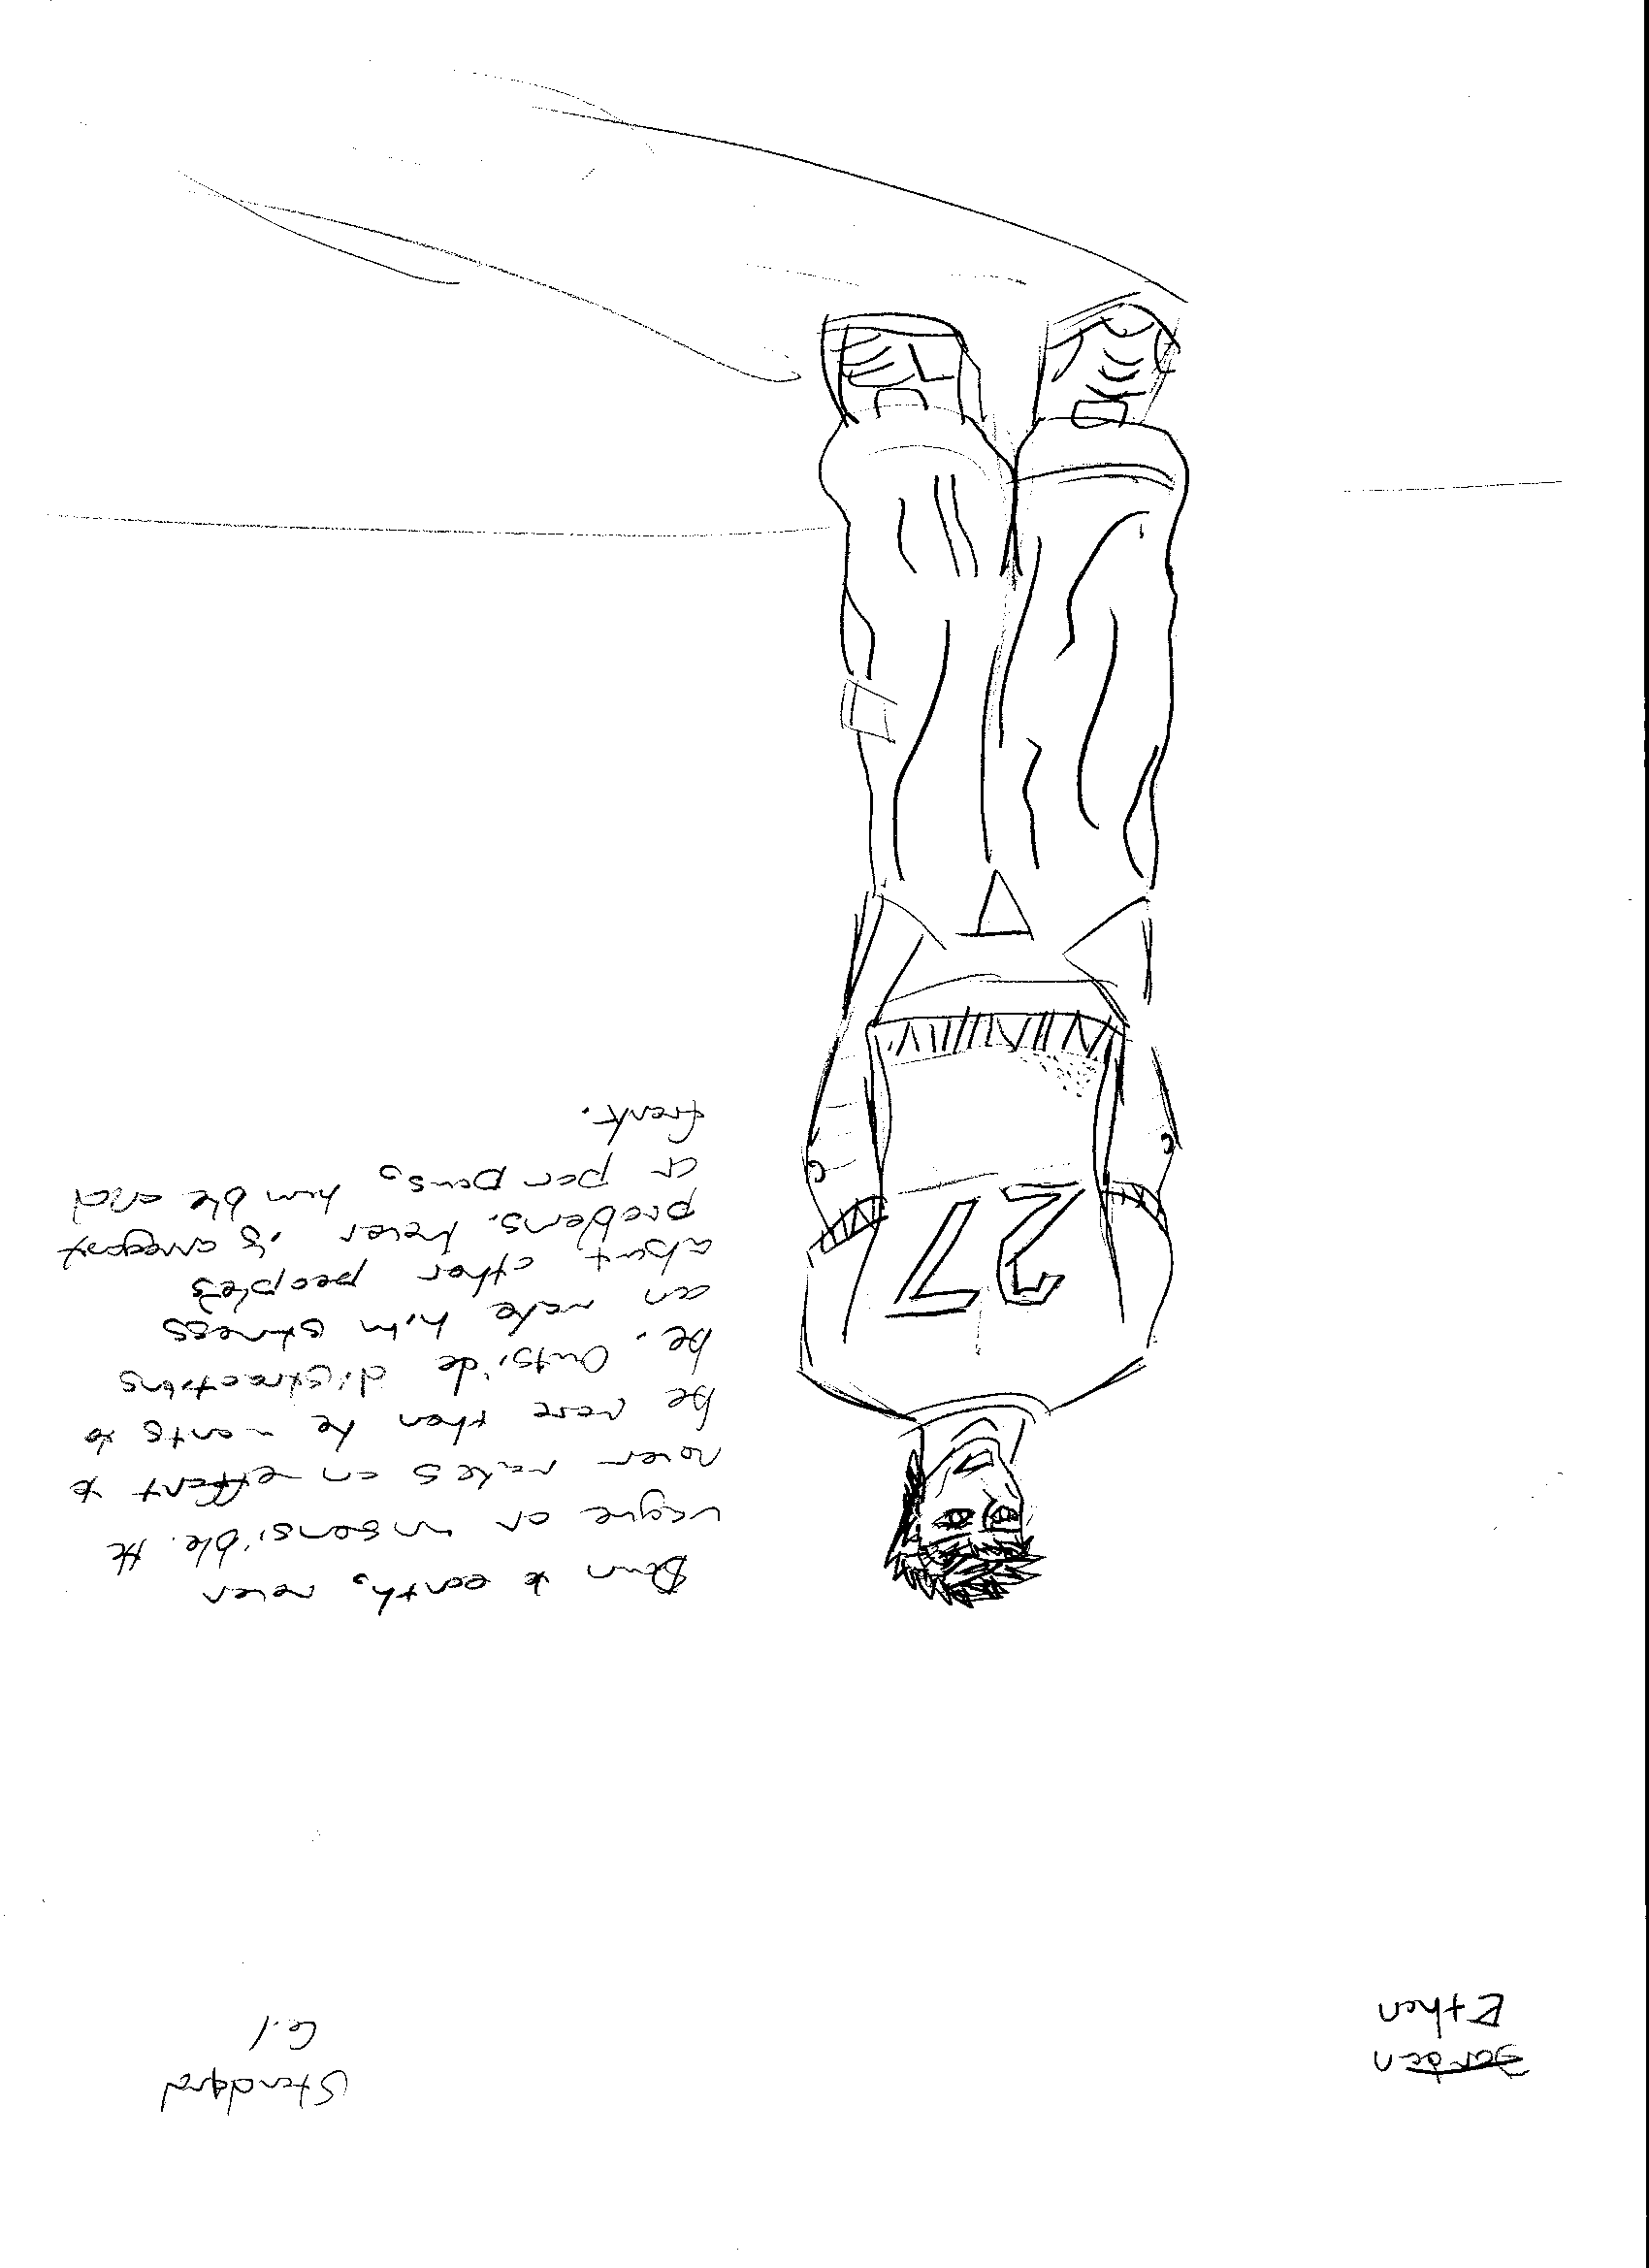 Ethen
Standard
C.1
Down to earth, never
vague or insensible. He
never makes an effort to
be more then he wants to
be. Outside distractions
can make him stress
about other peoples
problems. Never is arrogant
or pompous, humble and
frank.
27